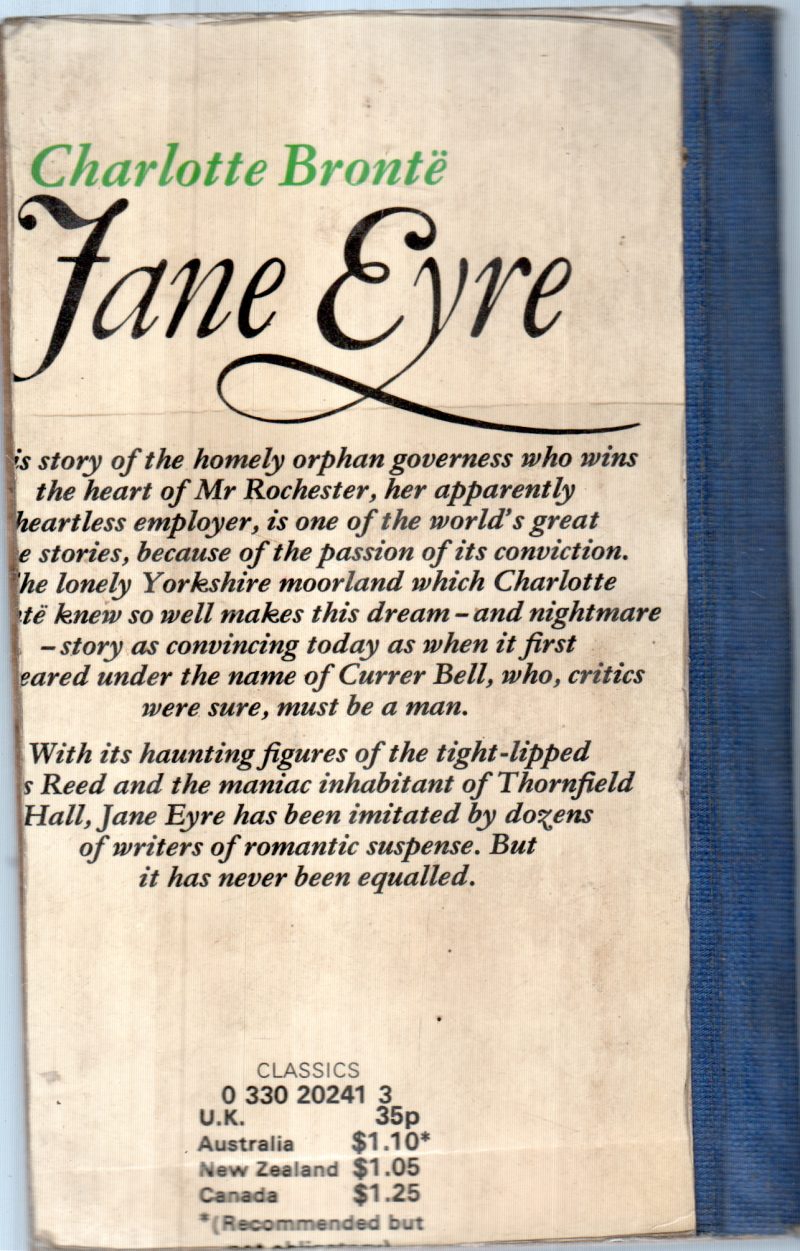 Charlotte Brontë
Jane Eyre
is story of the homely orphan governess who wins
the heart of Mr Rochester, her apparently
heartless employer, is one of the world's great
e stories, because of the passion of its conviction.
he lonely Yorkshire moorland which Charlotte
të knew so well makes this dream – and nightmare
– story as convincing today as when it first
eared under the name of Currer Bell, who, critics
were sure, must be a man.
With its haunting figures of the tight-lipped
s Reed and the maniac inhabitant of Thornfield
Hall, Jane Eyre has been imitated by dozens
of writers of romantic suspense. But
it has never been equalled.
CLASSICS
0 330 20241 3
U.K. 35p
Australia $1.10*
New Zealand $1.05
Canada $1.25
*(Recommended but